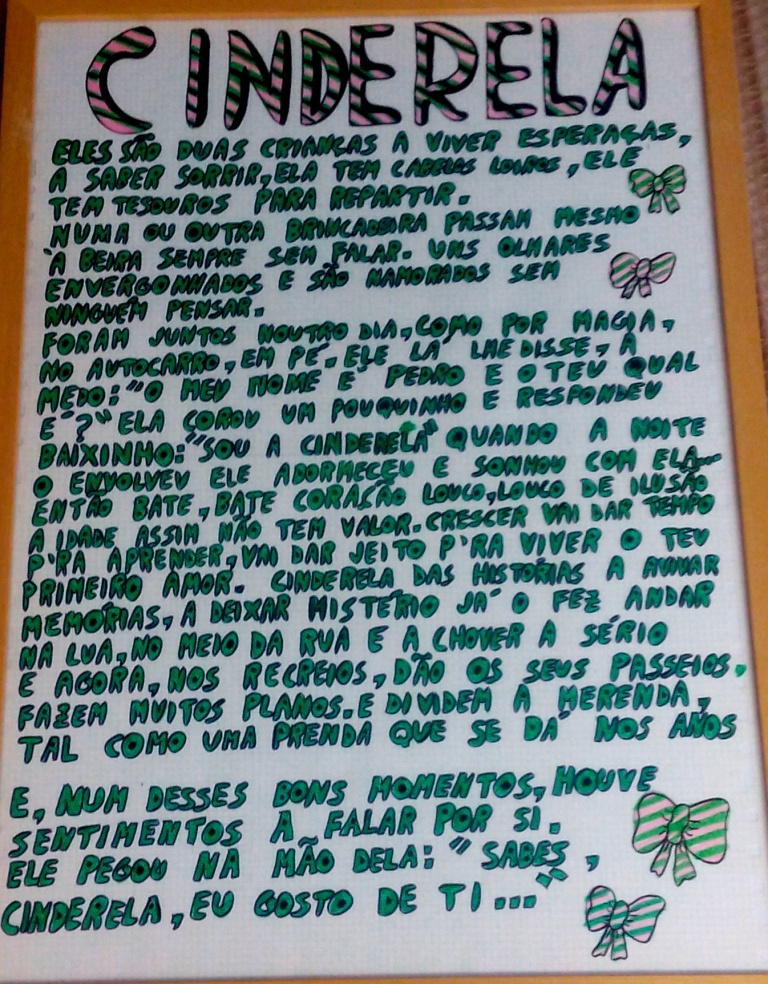 CINDERELA
ELES SÃO DUAS CRIANÇAS A VIVER ESPERAÇAS,
A SABER SORRIR, ELA TEM CABELOS LOIROS, ELE
TEM TESOUROS PARA REPARTIR.
NUMA OU OUTRA BRINCADEIRA PASSAM MESMO
À BEIRA SEMPRE SEM FALAR. UNS OLHARES
ENVERGONHADOS E SÃO NAMORADOS SEM
NINGUÉM PENSAR.
FORAM JUNTOS NOUTRO DIA, COMO POR MAGIA,
NO AUTOCARRO, EM PÉ. ELE LÁ LHE DISSE, A
MEDO: "O MEU NOME É PEDRO E O TEU QUAL
É?" ELA COROU UM POUQUINHO E RESPONDEU
BAIXINHO: "SOU A CINDERELA" QUANDO A NOITE
O ENVOLVEU ELE ADORMECEU E SONHOU COM ELA...
ENTÃO BATE, BATE CORAÇÃO LOUCO, LOUCO DE ILUSÃO
A IDADE ASSIM NÃO TEM VALOR. CRESCER VAI DAR TEMPO
P'RA APRENDER, VAI DAR JEITO P'RA VIVER O TEU
PRIMEIRO AMOR. CINDERELA DAS HISTÓRIAS A AVIVAR
MEMÓRIAS, A DEIXAR MISTÉRIO JÁ O FEZ ANDAR
NA LUA, NO MEIO DA RUA E A CHOVER A SÉRIO
E AGORA, NOS RECREIOS, DÃO OS SEUS PASSEIOS.
FAZEM MUITOS PLANOS. E DIVIDEM A MERENDA,
TAL COMO UMA PRENDA QUE SE DÁ NOS ANOS
E, NUM DESSES BONS MOMENTOS, HOUVE
SENTIMENTOS A FALAR POR SI.
ELE PEGOU NA MÃO DELA: "SABES,
CINDERELA, EU GOSTO DE TI..."